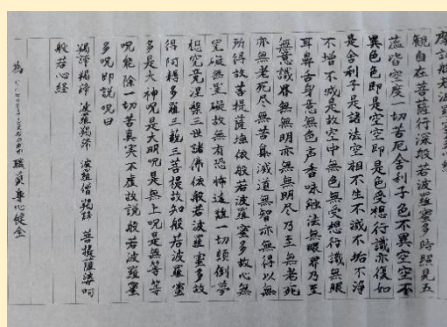 観自在菩薩行深般若波羅蜜多時照見五
蘊皆空度一切苦厄舎利子色不異空空不
異色色即是空空即是色受想行識亦復如
是舎利子是諸法空相不生不滅不垢不浄
不増不減是故空中無色無受想行識無眼
耳鼻舌身意無色声香味触法無眼界乃至
無意識界無無明亦無無明尽乃至無老死
亦無老死尽無苦集滅道無智亦無得以無
所得故菩提薩埵依般若波羅蜜多故心無
罣礙無罣礙故無有恐怖遠離一切顛倒夢
想究竟涅槃三世諸佛依般若波羅蜜多故
得阿耨多羅三藐三菩提故知般若波羅蜜
多是大神呪是大明呪是無上呪是無等等
呪能除一切苦真実不虚故説般若波羅蜜
多呪即説呪曰
羯諦羯諦 波羅羯諦 波羅僧羯諦 菩提薩婆訶
般若心経
為